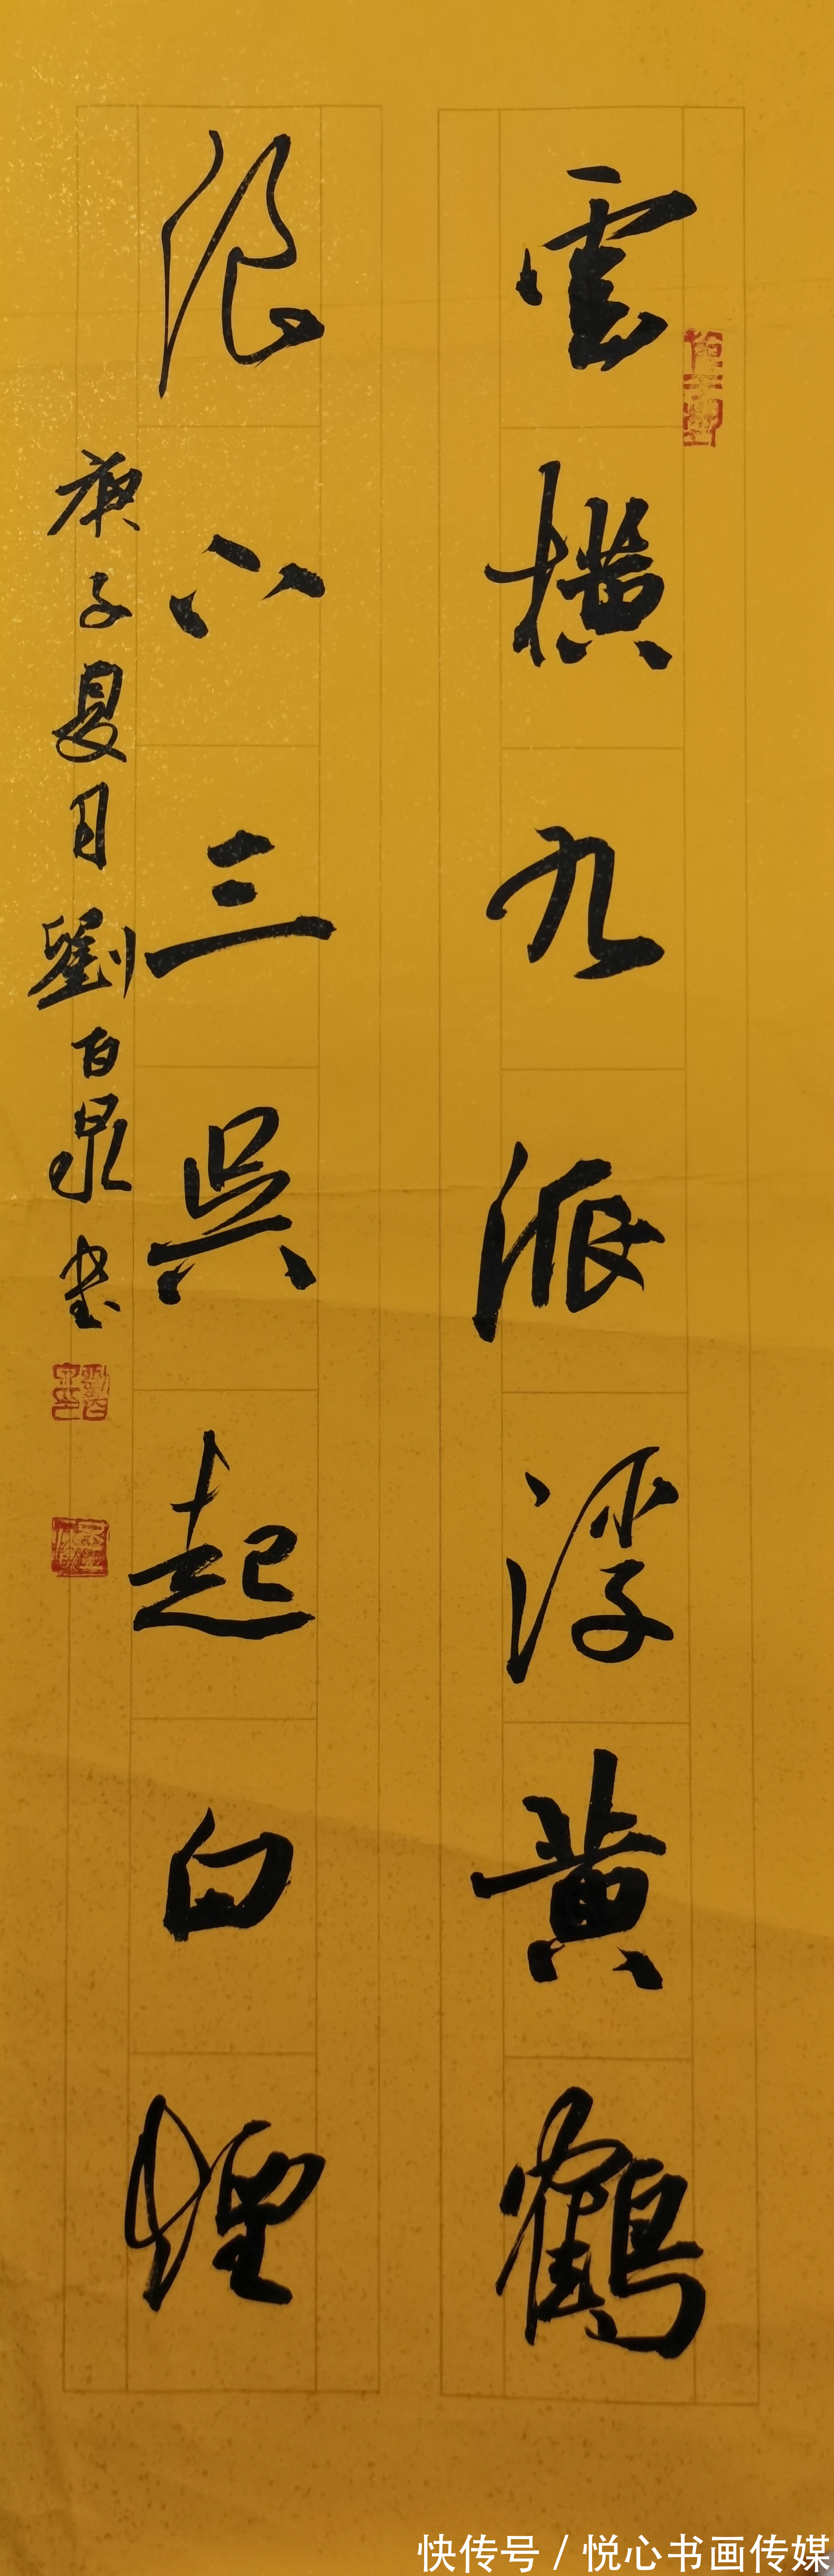 雲橫九派浮黃鶴
浪下三吳起白煙
庚子夏月劉百泉书
快传号 / 悦心书画传媒